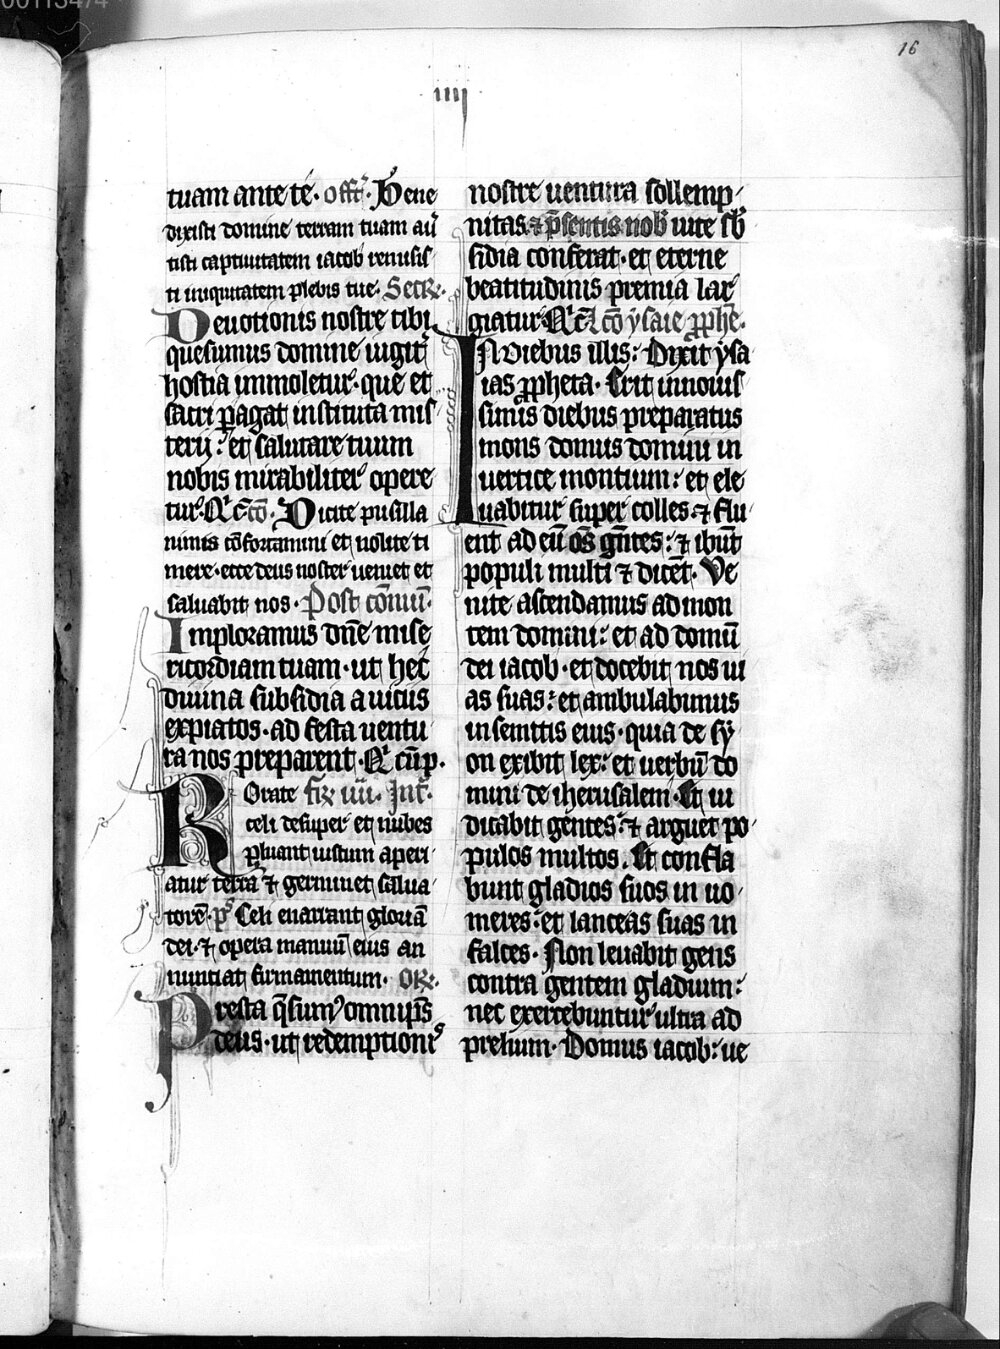 00113474
16
iiij
tuam ante te. off̄. Bene
dixisti domine terram tuam au̾
tisti captiuitatem iacob remisis
ti iniquitatem plebis tue. Secr̄.
Deuotionis nostre tibi
quesumus domine iugit̾
hostia immoletur. que et
sacri ꝑagat instituta mis
terij: et salutare tuum
nobis mirabiliter opere
tur. Cō. Dicite pusilla
nimis ꝯfortamini et nolite ti
mere. ecce deus noster ueniet et
saluabit nos. Post cōmū.
Imploramus dn̄e mise
ricordiam tuam. ut hec
diuina subsidia a uiciis
expiatos. ad festa uentu
ra nos preparent.
Rorate fr̄ iiij. Int̄.
celi desuper et nubes
pluant iustum aperi
atur terra ⁊ germinet salua
torē. p̄s Celi enarrant gloriā
dei. ⁊ opera manuū eius an
nuntiat firmamentum. or̄.
Presta q̄sum̾ omnip̄s
deus. ut redemptionis
nostre uentura sollemp
nitas. ⁊ p̄sentis nob̄ uite sb̾
sidia conferat. et eterne
beatitudinis premia lar
giatur. lc̄o ysaie ꝓph̄e.
IN diebus illis: Dixit ysa
ias ꝓpheta. Erit in nouis
simis diebus preparatus
mons domus domini in
uertice montium: et ele
uabitur super colles. ⁊ flu
ent ad eū om̄s gentes: ⁊ ibūt
populi multi ⁊ dicēt. Ve
nite ascendamus ad mon
tem domini: et ad domū
dei iacob. et docebit nos ui
as suas: et ambulabimus
in semitis eius. quia de sy
on exibit lex: et uerbū do
mini de iherusalem. Et iu
dicabit gentes: ⁊ arguet po
pulos multos. Et confla
bunt gladios suos in uo
meres: et lanceas suas in
falces. Non leuabit gens
contra gentem gladium:
nec exercebuntur ultra ad
prelium. Domus iacob: ue